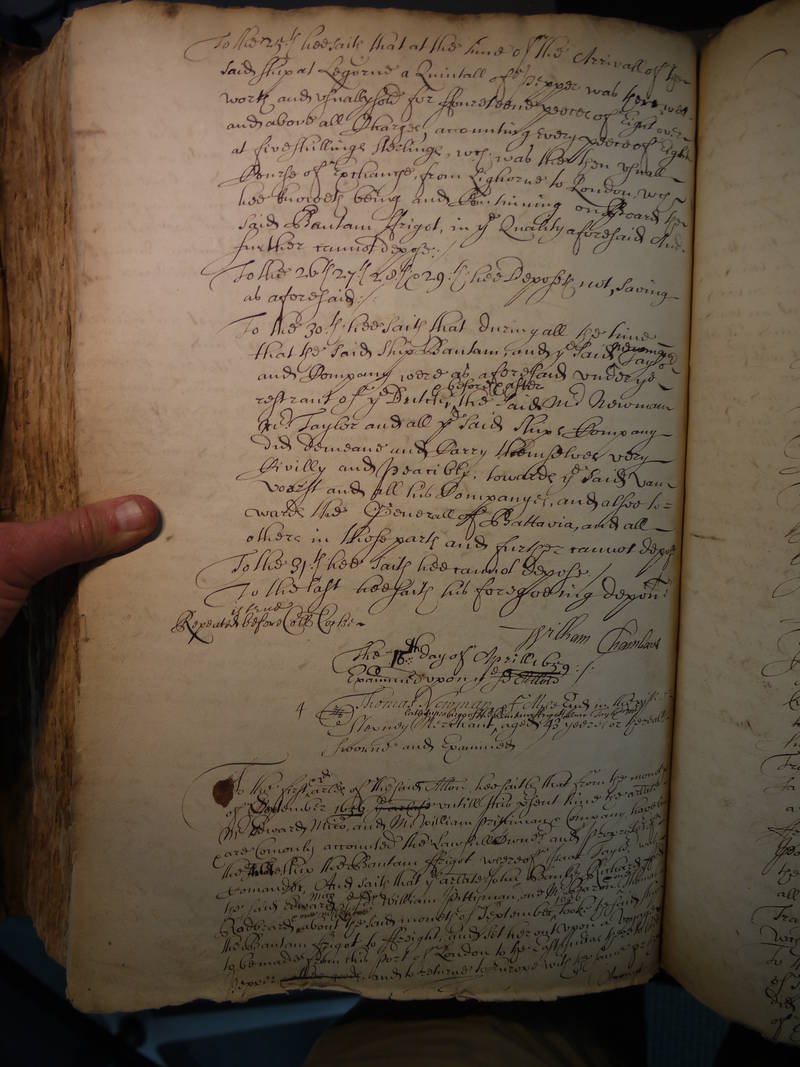 To the 25:th hee saith that at the time of the Arrivall of the
said ship at Legorne a Quintall of the Pepper was there
worth and usually sold for fourteene peeces of Eight over
and above all Charges, accounting every peece of Eight
at five shillings sterling, wch was then the usuall
Course of Exchange, from Lighorne to London, wch
hee knoweth being and Continuing on Board the
said Bantam ffrigot, in ye Quality aforesaid And
further cannot depose:/
To the 26th 27th 28th 29:th hee Deposeth not, saving
as aforesaid:/
To the 30:th hee saith that during all the time
that the said ship Bantam, and ye said
and Company were as aforesaid under ye
before & after
restraint of ye Dutch, the said Mr Newman
Taylor and all ye said ships Company
did demeane and Carry themselves very
Civilly and peacibly, towards ye said Van
Voorst and all his Companye, and alsoe to=
wards the Generall of Battavia, and all
others in those parts and further cannot depose
To the 31:th hee saith hee cannot depose./
To the last hee saith his foregoeing depon:
is true
Repeated before Coll Cocke
William Chambers
The 16th day of Aprill 1659:/
Examined upon ye
4
Thomas Newman of Mile End in the
Stepney Merchant, aged 43 yeares or thereab:
sworne and Examined
To the first arle of the said Allon hee saith that from the moneth
of September 1656 untill this present time the arlate
Mr Edward Mico, and Mr William Pittman and Company have
& are Comonly accounted the Lawfull Owners and Proprietors
the ship the Bantam ffrigot whereof Isaac Taylor was
Comander, And saith that ye arlate John Banks Richard
the said Edward Mico William Pittman, and
about the said moneth of September tooke the said
the Bantam ffrigot to ffreight, and set her out upon a voyage
to be made from this port of London to the East Indias there to
Pepper and to returne to Europe with the same